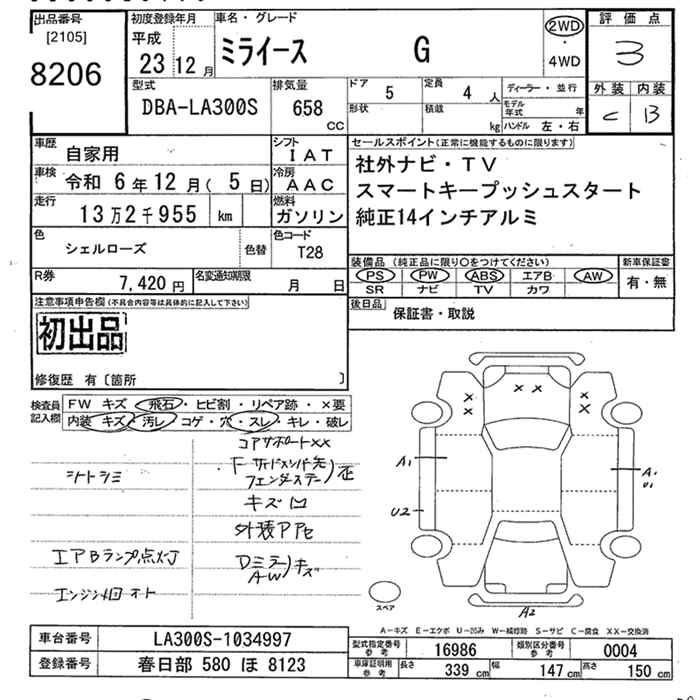 出品番号
[2105]
8206
初度登録年月
平成
23 12 月
車名・グレード
ミライース G
2WD
・
4WD
評価点
3
外装 内装
C B
型式
DBA-LA300S
排気量
658
CC
ドア 5
定員 4 人
形状
積載 kg
ディーラー・並行
モデル年式 年
ハンドル 左・右
車歴
自家用
シフト
IAT
車検
令和 6年 12月( 5日)
冷房
AAC
走行
13万2千955 km
燃料
ガソリン
色
シェルローズ
色替
色コード
T28
R券
7,420 円
名変通知期限
月 日
セールスポイント(正常に機能するものに限ります)
社外ナビ・TV
スマートキープッシュスタート
純正14インチアルミ
装備品 (純正品に限り〇をつけてください)
PS PW ABS エアB AW
SR ナビ TV カワ
新車保証書
有・無
後日品
保証書・取説
注意事項申告欄(不具合内容等は具体的に記入して下さい)
初出品
修復歴 有〔箇所 〕
検査員
記入欄
FW キズ・飛石・ヒビ割・リペア跡・×要
内装 キズ・汚レ・コゲ・穴・スレ・キレ・破レ
コアサポートXX
シートシミ
キズ凹
外装アアセ
エアBランプ点灯
Dミラー
AW
キズ
A1
U2
A1
U1
A2
スペア
A-キズ E-エクボ U-凹み W-補修跡 S-サビ C-腐食 XX-交換済
車台番号
LA300S-1034997
登録番号
春日部 580 ほ 8123
型式指定番号
参考
16986
類別区分番号
参考
0004
車庫証明用
参考
長さ 339 cm
幅 147 cm
高さ 150 cm